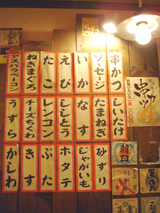 串かつ
ソーセージ
いか
えび
たこ
ねぎまぐろ
アスパラベーコン
しいたけ
たまねぎ
なす
ししとう
レンコン
チーズちくわ
うずら
砂ずり
じゃがいも
いわし
ホタテ
ぶた
きす
かしわ